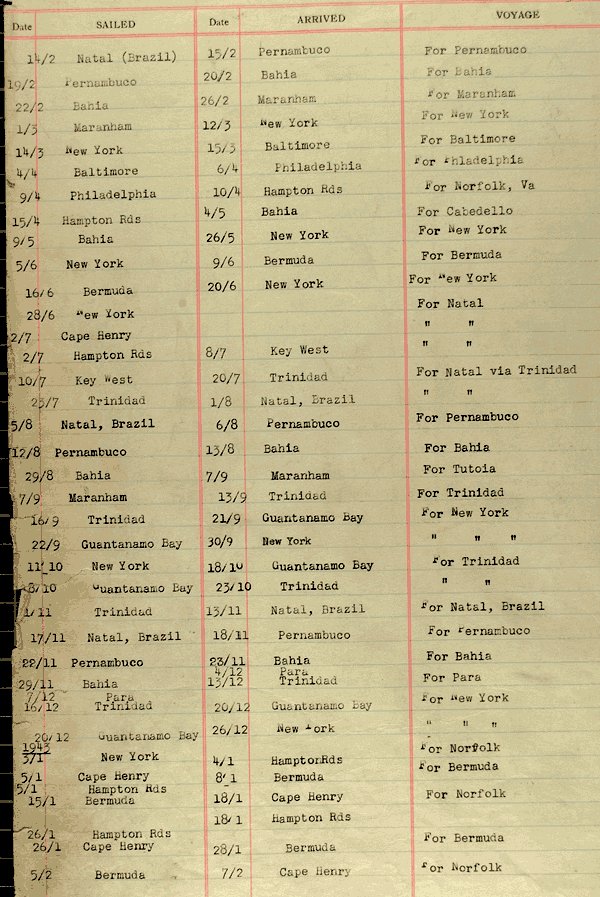 Date SAILED Date ARRIVED VOYAGE
14/2 Natal (Brazil) 15/2 Pernambuco For Pernambuco
19/2 Pernambuco 20/2 Bahia For Bahia
22/2 Bahia 26/2 Maranham For Maranham
1/3 Maranham 12/3 New York For New York
14/3 New York 15/3 Baltimore For Baltimore
4/4 Baltimore 6/4 Philadelphia For Phladelphia
9/4 Philadelphia 10/4 Hampton Rds For Norfolk, Va
15/4 Hampton Rds 4/5 Bahia For Cabedello
9/5 Bahia 26/5 New York For New York
5/6 New York 9/6 Bermuda For Bermuda
16/6 Bermuda 20/6 New York For New York
28/6 New York For Natal
2/7 Cape Henry " "
2/7 Hampton Rds 8/7 Key West " "
10/7 Key West 20/7 Trinidad For Natal via Trinidad
25/7 Trinidad 1/8 Natal, Brazil " "
5/8 Natal, Brazil 6/8 Pernambuco For Pernambuco
12/8 Pernambuco 13/8 Bahia For Bahia
29/8 Bahia 7/9 Maranham For Tutoia
7/9 Maranham 13/9 Trinidad For Trinidad
16/9 Trinidad 21/9 Guantanamo Bay For New York
22/9 Guantanamo Bay 30/9 New York " " "
11 10 New York 18/10 Guantanamo Bay For Trinidad
8/10 Guantanamo Bay 23/10 Trinidad " "
1/11 Trinidad 13/11 Natal, Brazil For Natal, Brazil
17/11 Natal, Brazil 18/11 Pernambuco For Pernambuco
22/11 Pernambuco 23/11 Bahia For Bahia
4/12 Para
29/11 Bahia 13/12 Trinidad For Para
7/12 Para For New York
16/12 Trinidad 20/12 Guantanamo Bay
20/12 Guantanamo Bay 26/12 New York " " "
1943
3/1 New York 4/1 Hampton.Rds For Norfolk
5/1 Cape Henry 8 1 Bermuda For Bermuda
5/1 Hampton Rds
15/1 Bermuda 18/1 Cape Henry For Norfolk
18/1 Hampton Rds
26/1 Hampton Rds For Bermuda
26/1 Cape Henry 28/1 Bermuda
5/2 Bermuda 7/2 Cape Henry For Norfolk